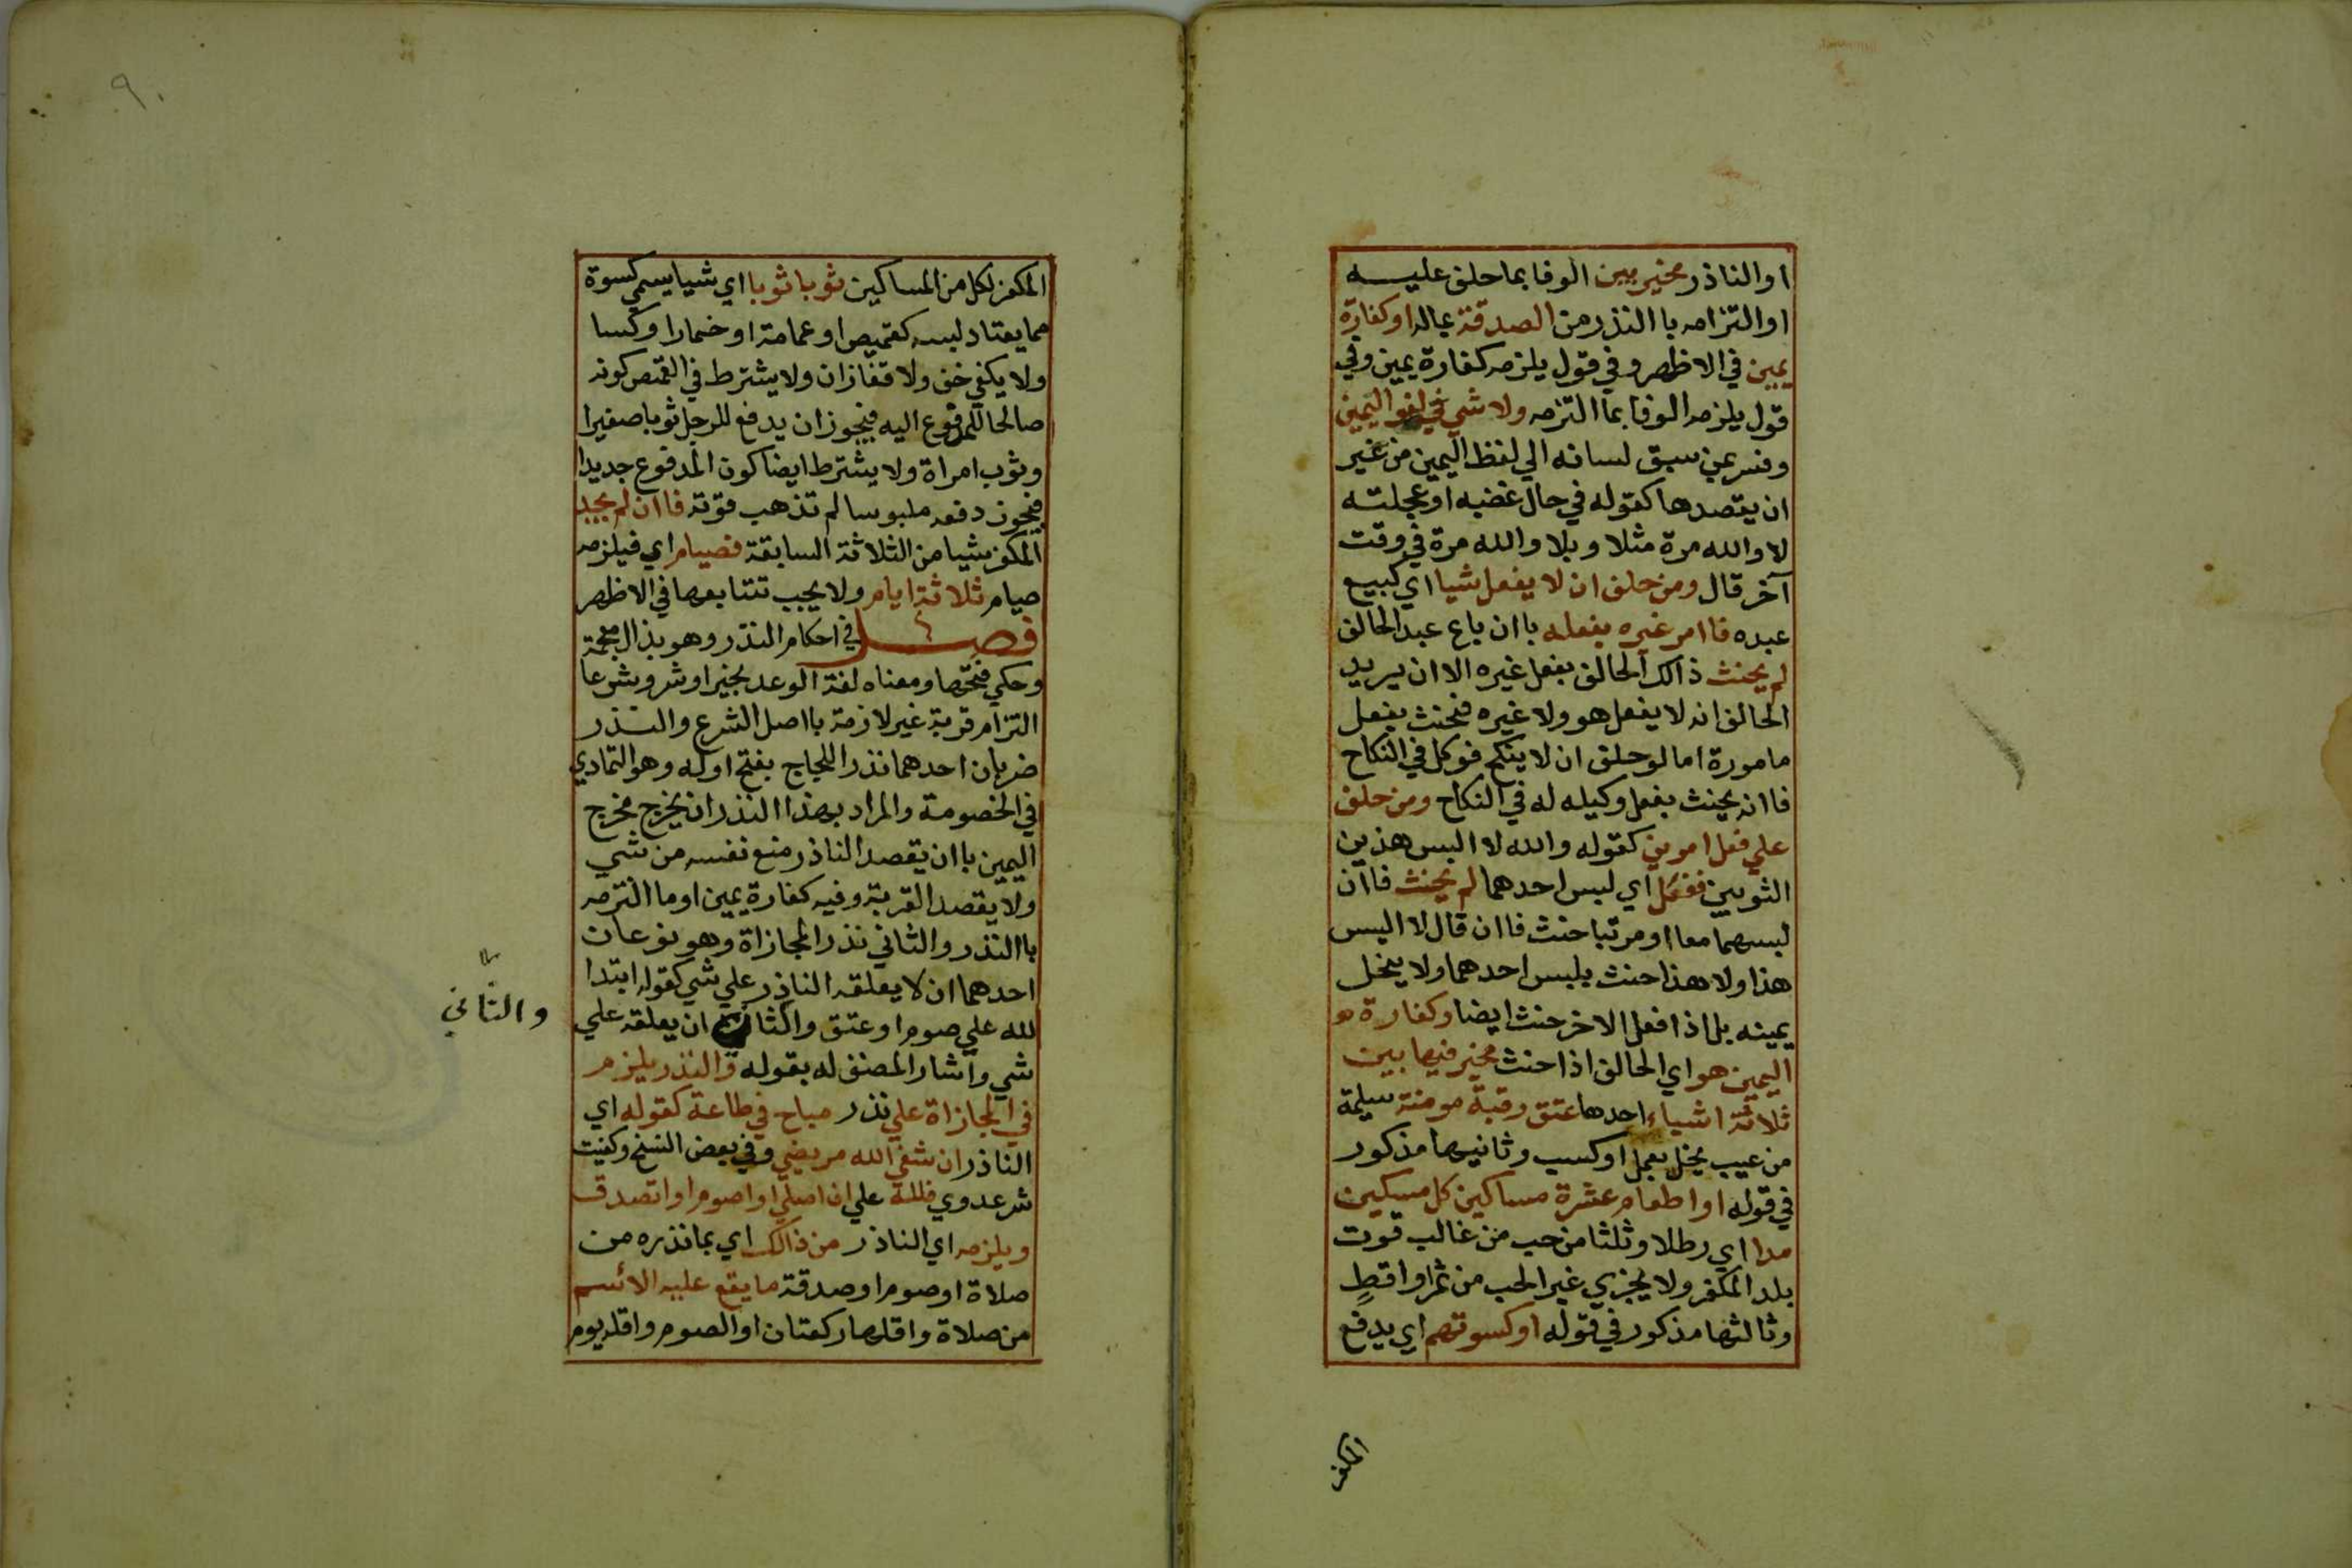 او الناذر مخير بين الوفا بما حلف عليه
او التزامه با النذر من الصدقة بماله او كفارة
يمين في الاظهر وفي قول يلزمه كفارة يمين وفي
قول يلزمه الوفا بما التزمه ولا شي في لغو اليمين
وفسر بمن سبق لسانه الي لفظ اليمين من غير
ان يقصدها كقوله في حال غضبه او عجلته
لا والله مرة مثلا وبلا والله مرة في وقت
آخر قال ومن حلف ان لا يفعل شيا اي كبيع
عبده فا امر غيره بفعله با ان باع عبد الحالف
لم يحنث ذالك الحالف بفعل غيره الا ان يريد
الحالف انه لا يفعل هو ولا غيره فيحنث بفعل
ماموره اما لو حلف ان لا ينكح فوكل في النكاح
فا انه يحنث بفعل وكيله له في النكاح ومن حلف
علي فعل امرين كقوله والله لا البس هذين
الثوبين ففعل اي لبس احدهما لم يحنث فا ان
لبسهما معا او مرتبا حنث فا ان قال لا البس
هذا ولا هذا حنث بلبس احدهما ولا ينحل
يمينه بل اذا فعل الاخر حنث ايضا وكفارة هو
اليمين هو اي الحالف اذا حنث مخير فيها بين
ثلاثة اشياء احدها عتق رقبة مومنة سليمة
من عيب يخل بعمل او كسب وثانيها مذكور
في قوله او اطعام عشرة مساكين كل مسكين
مدا اي رطلا وثلثا من حب من غالب قوت
بلد المكفر ولا يجزي غير الحب من تمر او اقط
وثالثها مذكور في قوله او كسوتهم اي يدفع
المكفر
٩٠
المكفر لكل من المساكين ثوبا ثوبا اي شيا يسمي كسوة
مما يعتاد لبسه كقميص او عمامة او خمار او كسا
ولا يكفي خف ولا قفازان ولا يشترط في القميص كونه
صالحا للمدفوع اليه فيجوز ان يدفع للرجل ثوبا صغيرا
وثوب امراة ولا يشترط ايضا كون المدفوع جديدا
فيجوز دفعه ملبوسا لم تذهب قوته فا ان لم يجد
المكفر شيا من الثلاثة السابقة فصيام اي فيلزمه
صيام ثلاثة ايام ولا يجب تتابعها في الاظهر
فصل في احكام النذر وهو بذال معجمة
وحكي فتحها ومعناه لغة الوعد بخير او شر وشرعا
التزام قربة غير لازمة با اصل الشرع والنذر
ضربان احدهما نذر اللجاج بفتح اوله وهو التمادي
في الخصومة والمراد بهذا النذر ان يخرج مخرج
اليمين با ان يقصد الناذر منع نفسه من شي
ولا يقصد القربة وفيه كفارة يمين او ما التزمه
با النذر والثاني نذر المجازاة وهو نوعان
احدهما ان لا يعلقه الناذر علي شي كقوله ابتدا
لله علي صوم او عتق والثاني ان يعلقه علي
والثاني
شي واشار المصنف له بقوله والنذر يلزم
في المجازاة علي نذر مباح في طاعة كقوله اي
الناذر ان شفي الله مريضي وفي بعض النسخ وكفيت
شر عدوي فلله علي ان اصلي او اصوم او اتصدق
ويلزمه اي الناذر من ذالك اي بما نذره من
صلاة او صوم او صدقة ما يقع عليه الائسم
من صلاة واقلها ركعتان او الصوم واقله يوم